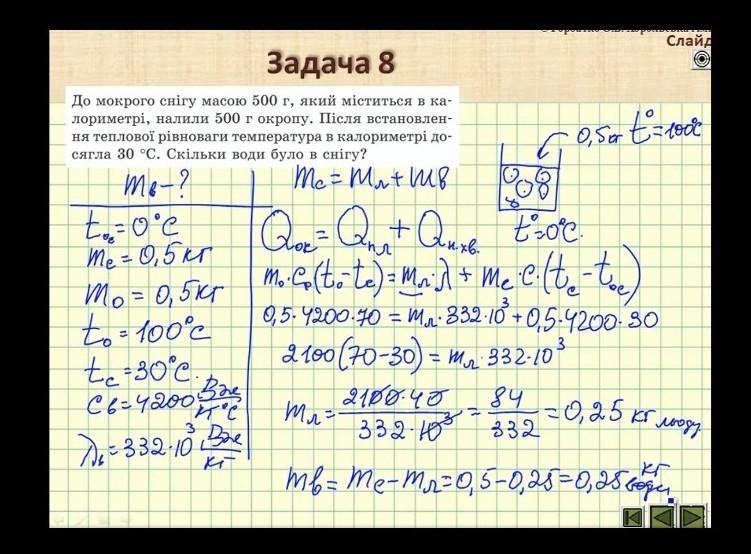 Слайд
Задача 8
До мокрого снігу масою 500 г, який міститься в ка-
лориметрі, налили 500 г окропу. Після встановлен-
ня теплової рівноваги температура в калориметрі до-
сягла 30 °С. Скільки води було в снігу?
0,5кг t°=100°C
mв-?
mс = mл + mв
t°=0°C.
tос=0°C
mс=0,5кг
mо=0,5кг
tо=100°C
tс=30°C.
Cв=4200 Дж/кг°C
λл=332·10³ Дж/кг
Qок = Qпл + Qн.хв.
mо·Cв(tо-tс)=mл·λ + mс·C·(tс-tос)
0,5·4200·70 = mл·332·10³+0,5·4200·30
2100(70-30)=mл·332·10³
mл= 2100·40/332·10³ = 84/332 =0,25 кг льоду
mв= mс-mл=0,5-0,25=0,25 кг води